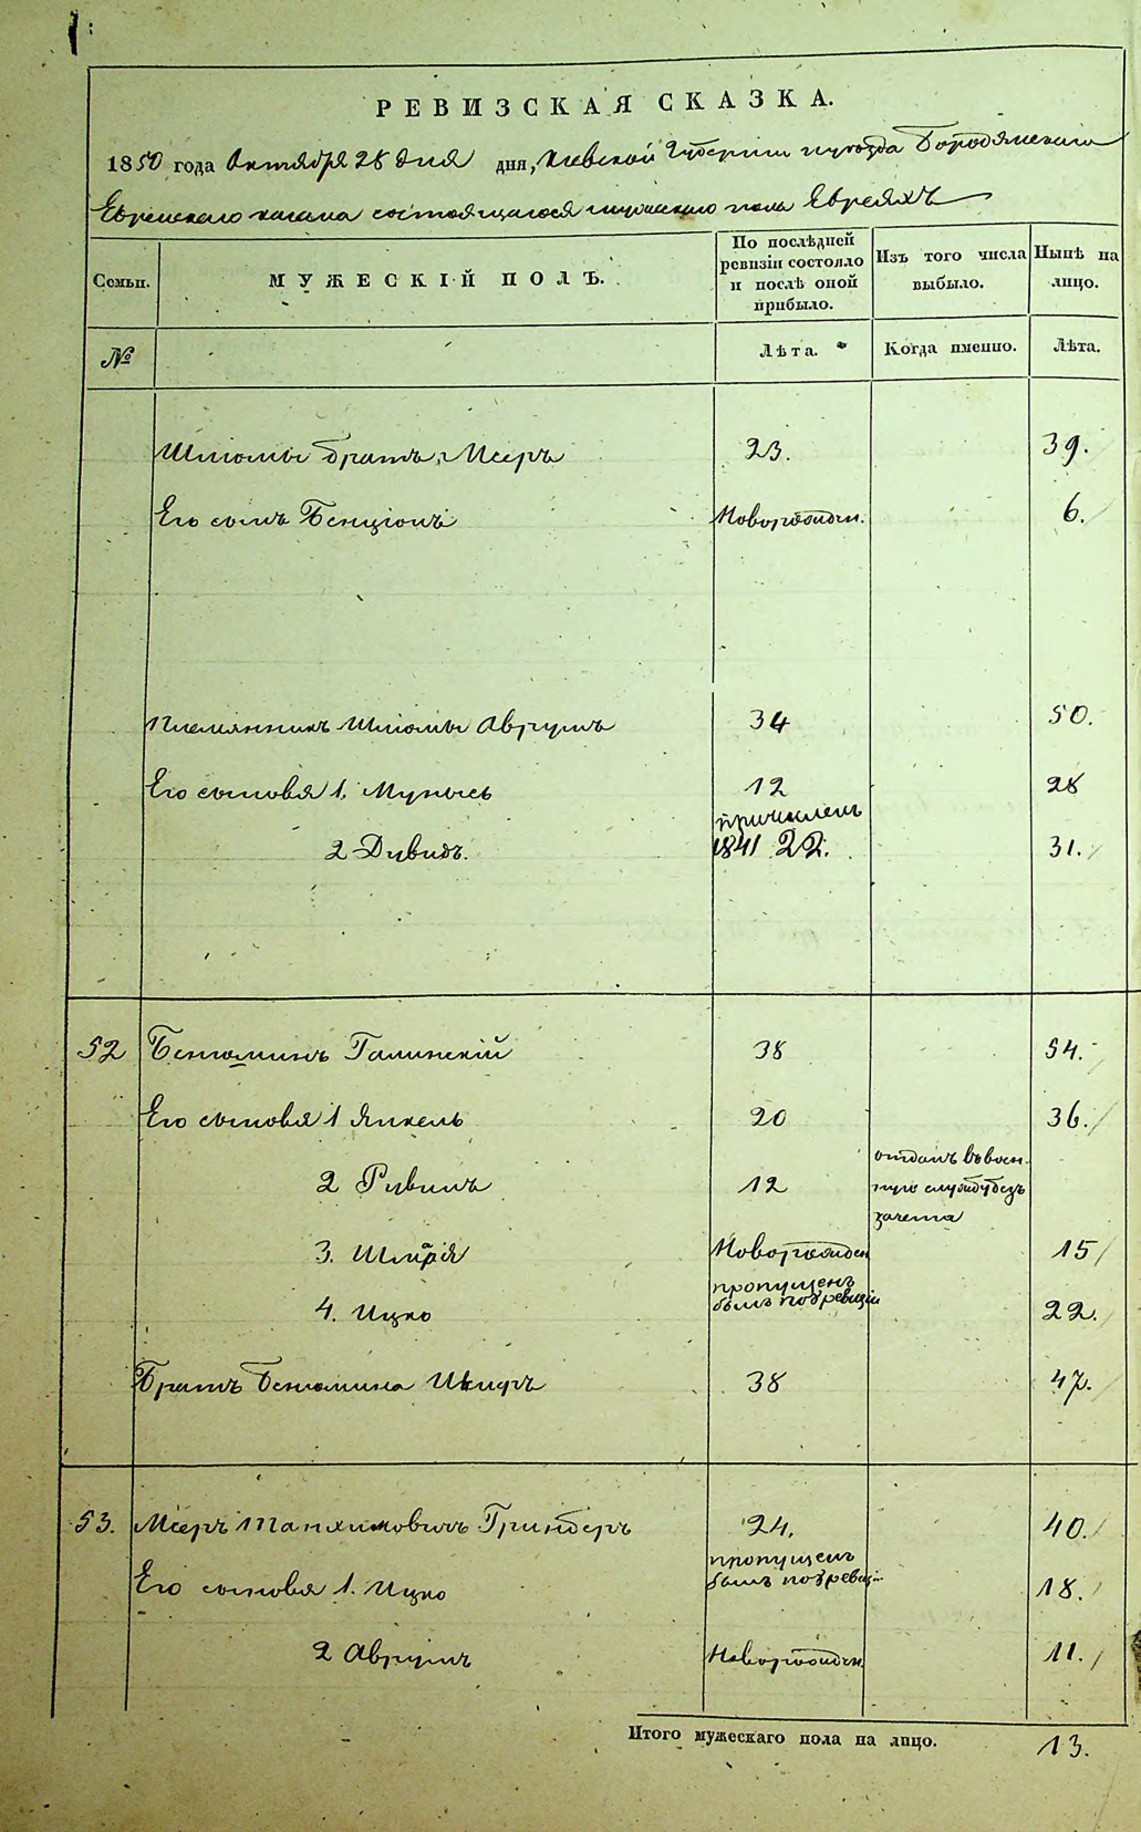 РЕВИЗСКАЯ СКАЗКА.
1850 года Октября 28 дня дня, Киевской Губернии и уезда Бородянскаго
Еврейскаго кагала состоящагося мужескаго пола Евреяхъ
Семьи.
МУЖЕСКІЙ ПОЛЪ.
По послѣдней ревизіи состояло и послѣ оной прибыло.
Изъ того числа выбыло.
Нынѣ на лицо.
№
Лѣта.
Когда именно.
Лѣта.
Шліомы братъ, Мееръ 23. 39.
Его сынъ Бенціонъ Новорожден. 6.
Племянникъ Шліомы Аврумъ 34 50.
Его сыновья 1. Мунысь 12 28
причисленъ
2 Дивидъ. 1841 22. 31.
52 Бенюминъ Галинскій 38 54.
Его сыновья 1 Янкель 20 36.
отданъ въ воен-
2 Рувинъ 12 ную службу безъ
зачета
3. Шмарія Новорожден 15
пропущенъ
4. Ицко былъ по 8 ревизіи 22.
Братъ Бенюмина 38 47.
53. Мееръ Танхимовичъ Гринберъ 24. 40.
пропущенъ
Его сыновья 1. Ицко былъ по 8 ревизі 18.
2 Аврумъ Новорожден. 11.
Итого мужескаго пола на лицо. 13.